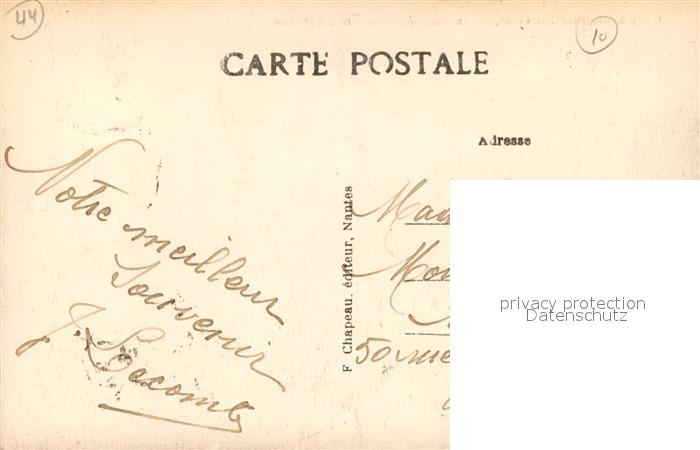 44
10
CARTE POSTALE
Adresse
Notre meilleur
Souvenir
J. Lecomte
F Chapeau, éditeur, Nantes
50 rue
privacy protection
Datenschutz